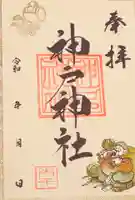 奉拝
神戸神社
令和 年 月 日